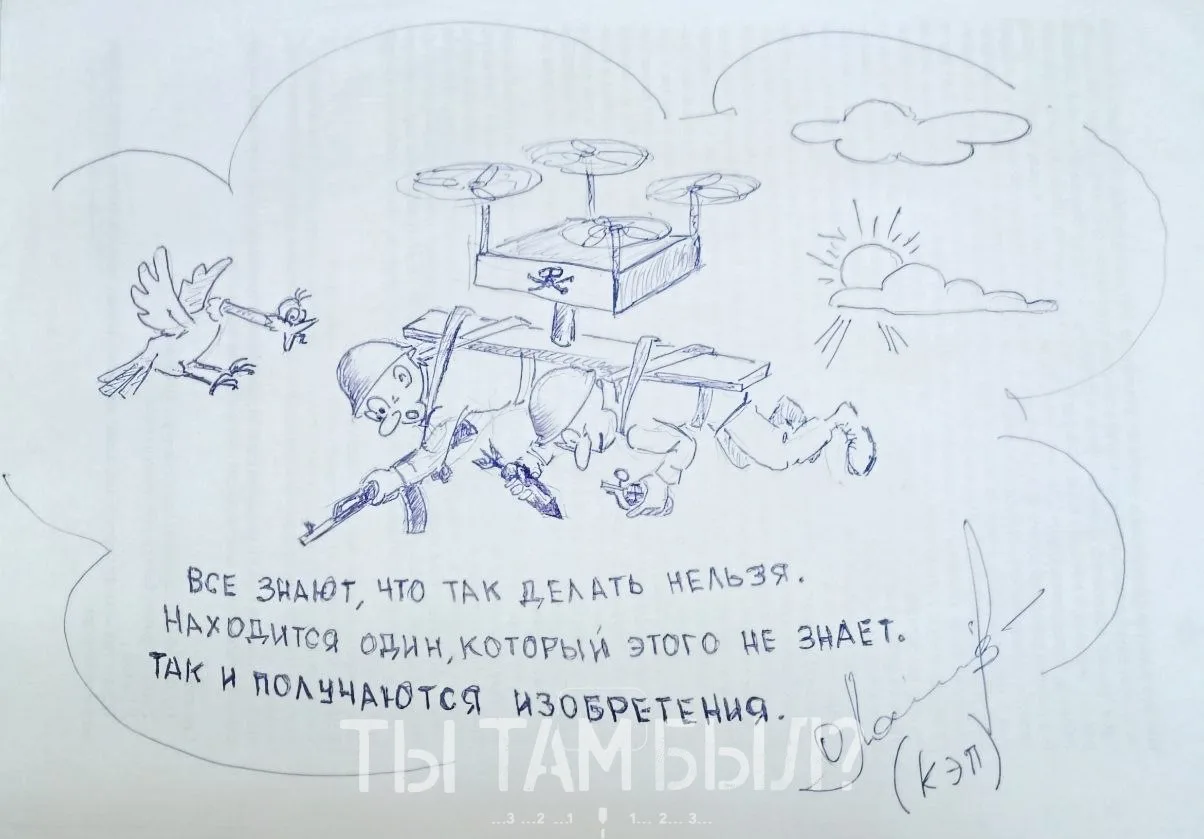 ВСЕ ЗНАЮТ, ЧТО ТАК ДЕЛАТЬ НЕЛЬЗЯ.
НАХОДИТСЯ ОДИН, КОТОРЫЙ ЭТОГО НЕ ЗНАЕТ.
ТАК И ПОЛУЧАЮТСЯ ИЗОБРЕТЕНИЯ.
(КЭП)
ТЫ ТАМ БЫЛ?
...3 ...2 ...1 1... 2... 3...